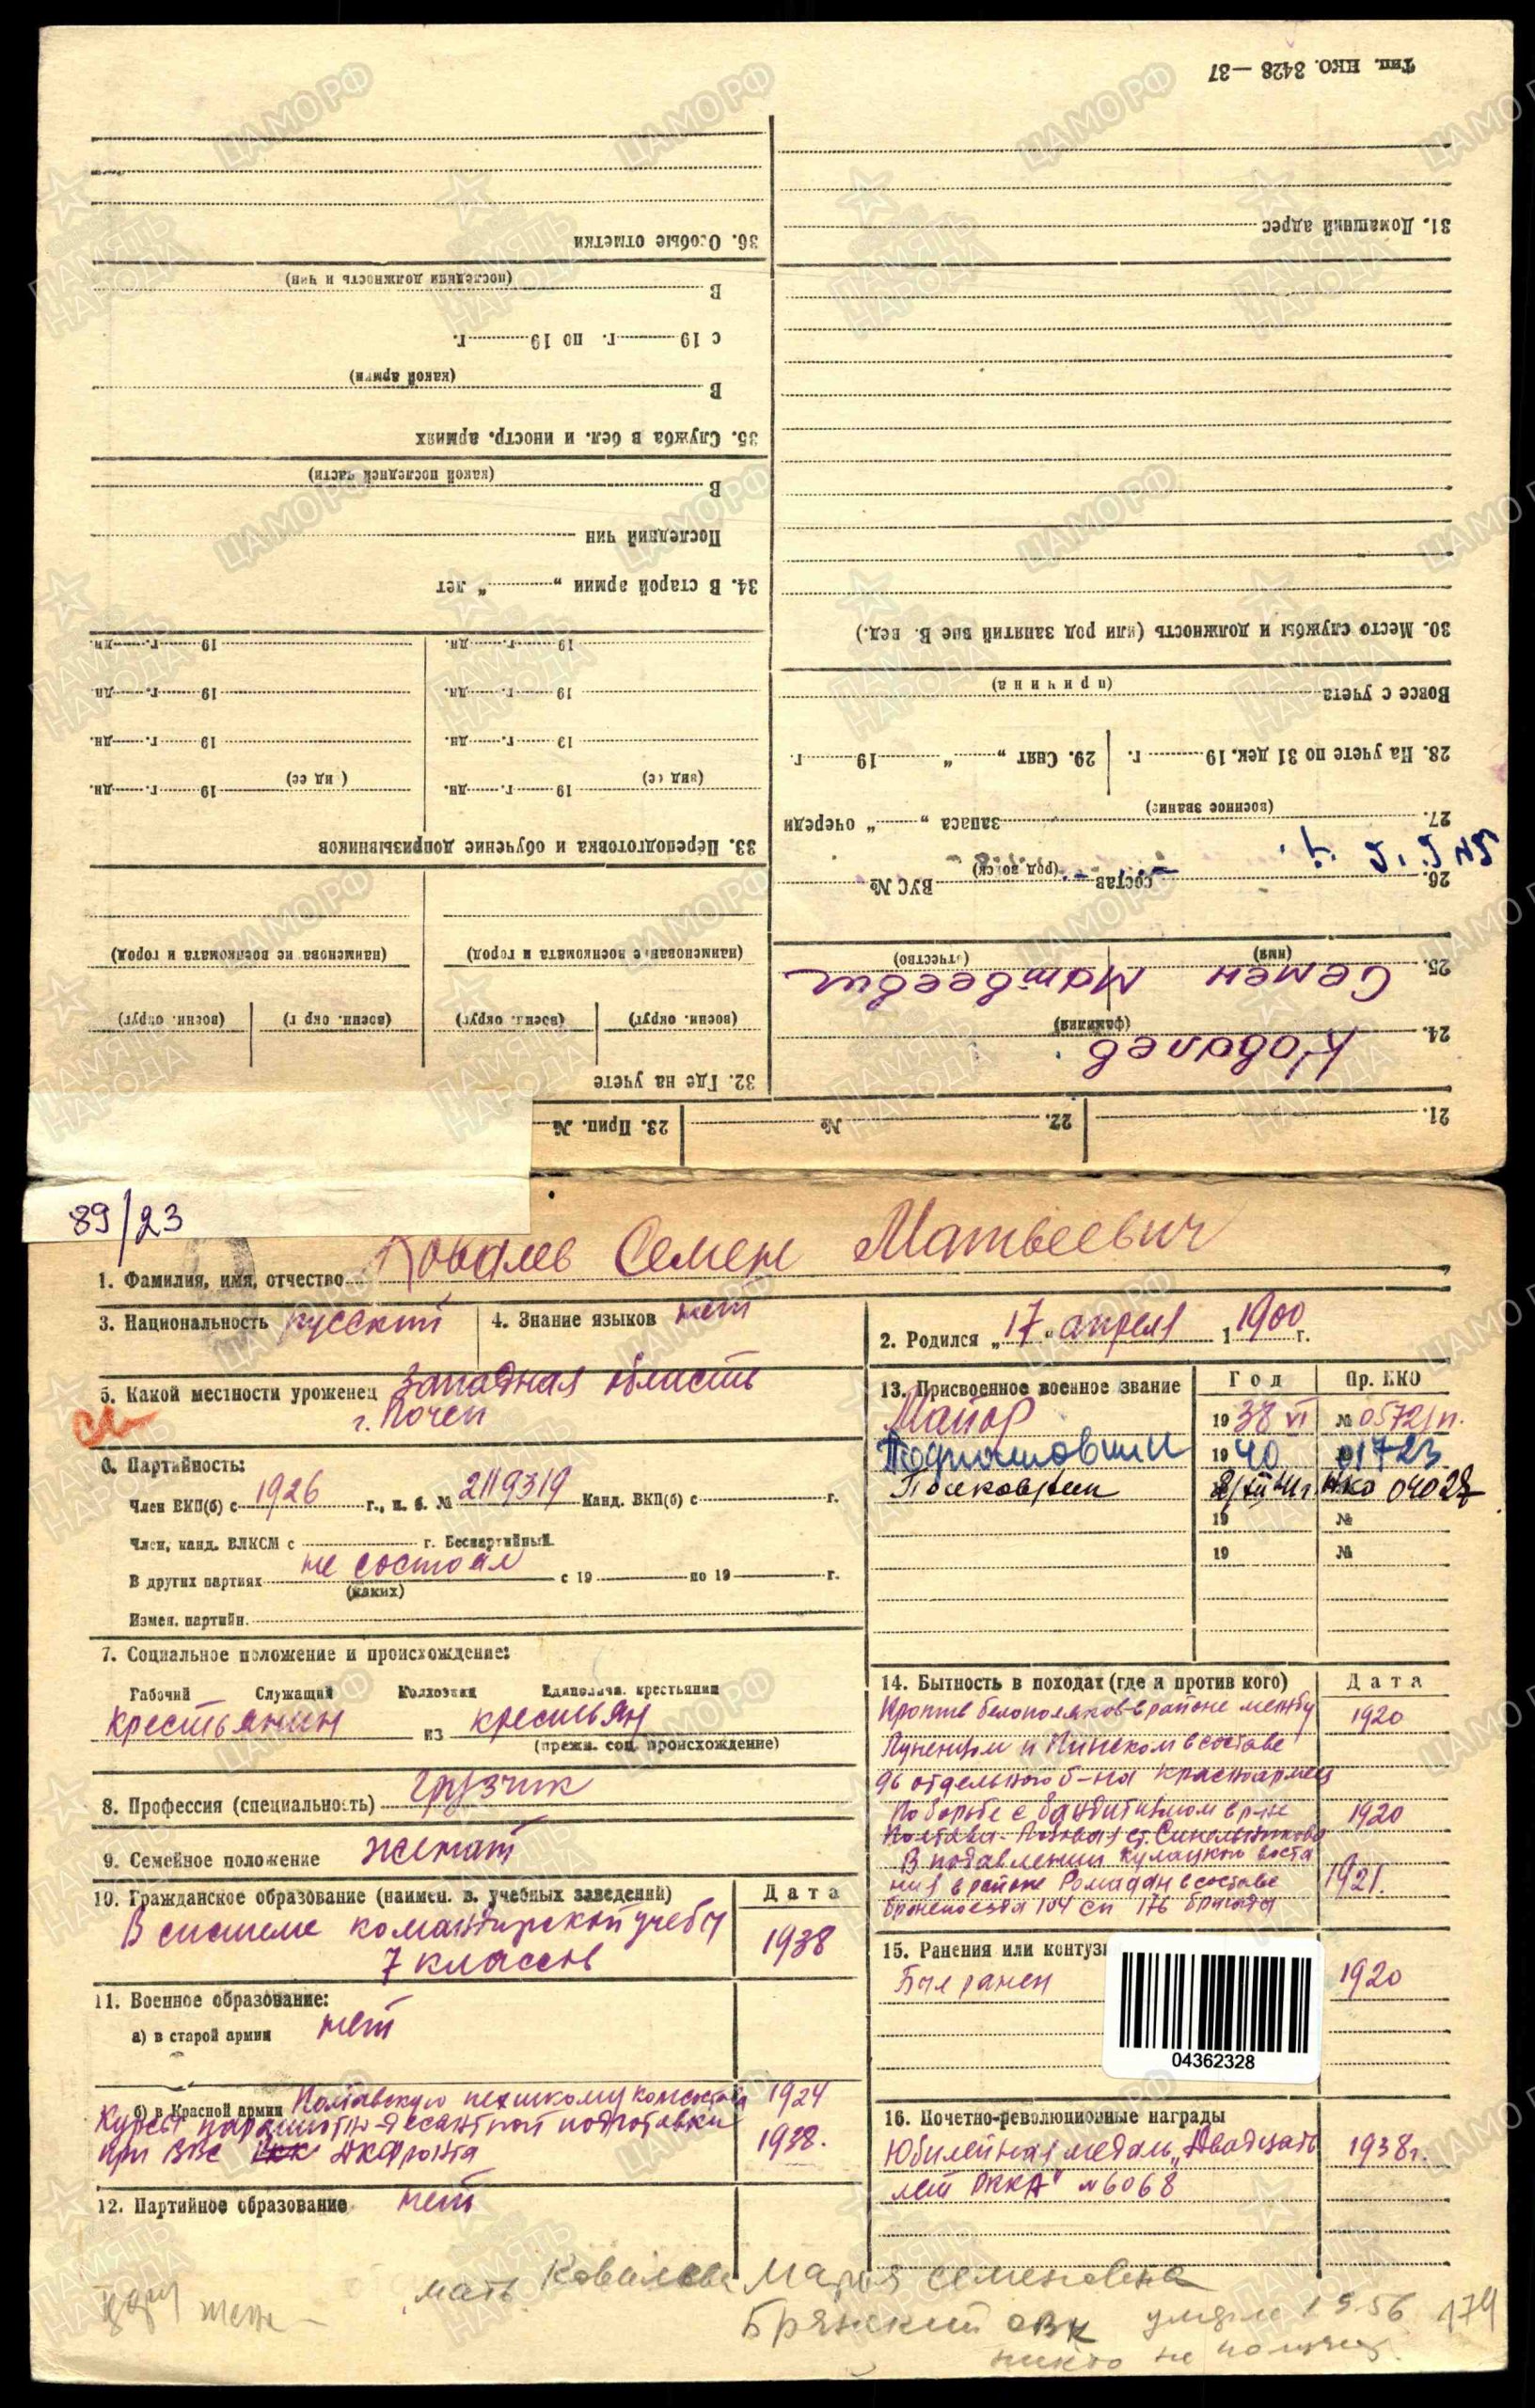 Тип. НКО. 3428 — 37
31. Домашний адрес
30. Место службы и должность (или род занятий вне В. вед.)
Вовсе с учета
(причина)
28. На учете по 31 дек. 19 г. 29. Снят „ “ 19 г.
27. запаса „ “ очереди
(военное звание)
26. состав ВУС №
(род войск)
25. Семен Матвеевич
(имя) (отчество)
24. Ковалев
(фамилия)
21. 22. № 23. Прип. №
36. Особые отметки
(последняя должность и чин)
В
с 19 г. по 19 г.
(какой армии)
В
35. Служба в бел. и иностр. армиях
(какой последней части)
В
Последний чин
34. В старой армии „ “ лет
19 г. дн. 19 г. дн.
19 г. дн. 19 г. дн.
19 г. дн. 19 г. дн.
19 г. дн. 19 г. дн.
33. Переподготовка и обучение допризывников
(наименование военкомата и город) (наименование военкомата и город)
(военн. округ) (военн. округ) (военн. округ) (военн. округ)
32. Где на учете
89/23
1. Фамилия, имя, отчество Ковалев Семен Матвеевич
3. Национальность русский 4. Знание языков нет
2. Родился „17“ апреля 1900 г.
5. Какой местности уроженец Западная область
г. Почеп
6. Партийность:
Член ВКП(б) с 1926 г., п. б. № 2119319 Канд. ВКП(б) с г.
Член, канд. ВЛКСМ с г. Беспартийный.
В других партиях не состоял с 19 по 19 г.
(каких)
Измен. партийн.
7. Социальное положение и происхождение:
Рабочий Служащий Колхозник Единолича. крестьянин
крестьянин из крестьян
(прежн. соц. происхождение)
8. Профессия (специальность) грузчик
9. Семейное положение женат
10. Гражданское образование (наимен. в. учебных заведений) Дата
В системе командирской учебы
7 классов 1938
11. Военное образование:
а) в старой армии нет
б) в Красной армии Полтавскую пехшколу комсостава 1924
Курсы парашютно-десантной подготовки
при ВВС ДКФронта 1938.
12. Партийное образование нет
13. Присвоенное военное звание Год Пр. НКО
Майор 1938 VI № 0572/п.
Подполковник 1940 01723
Полковник НКО 04027
19 №
19 №
14. Бытность в походах (где и против кого) Дата
Против белополяков в районе между 1920
Лунинцом и Пинском в составе
96 отдельного б-на красноармеец
По борьбе с бандитизмом в р-не 1920
Полтава - Лозовая ст. Синельниково
В подавлении кулацкого воста
ния в районе Ромадан в составе 1921.
бронепоезда 104 сп 176 бригада
15. Ранения или контуз
Был ранен 1920
04362328
16. Почетно-революционные награды
Юбилейная медаль „Двадцать 1938г.
лет РККА“ № 6068
мать Ковалева Мария Семеновна
жена –
Брянский ОВК умерла 1956 174
никто не получ
ЦАМО.РФ
ПАМЯТЬ НАРОДА